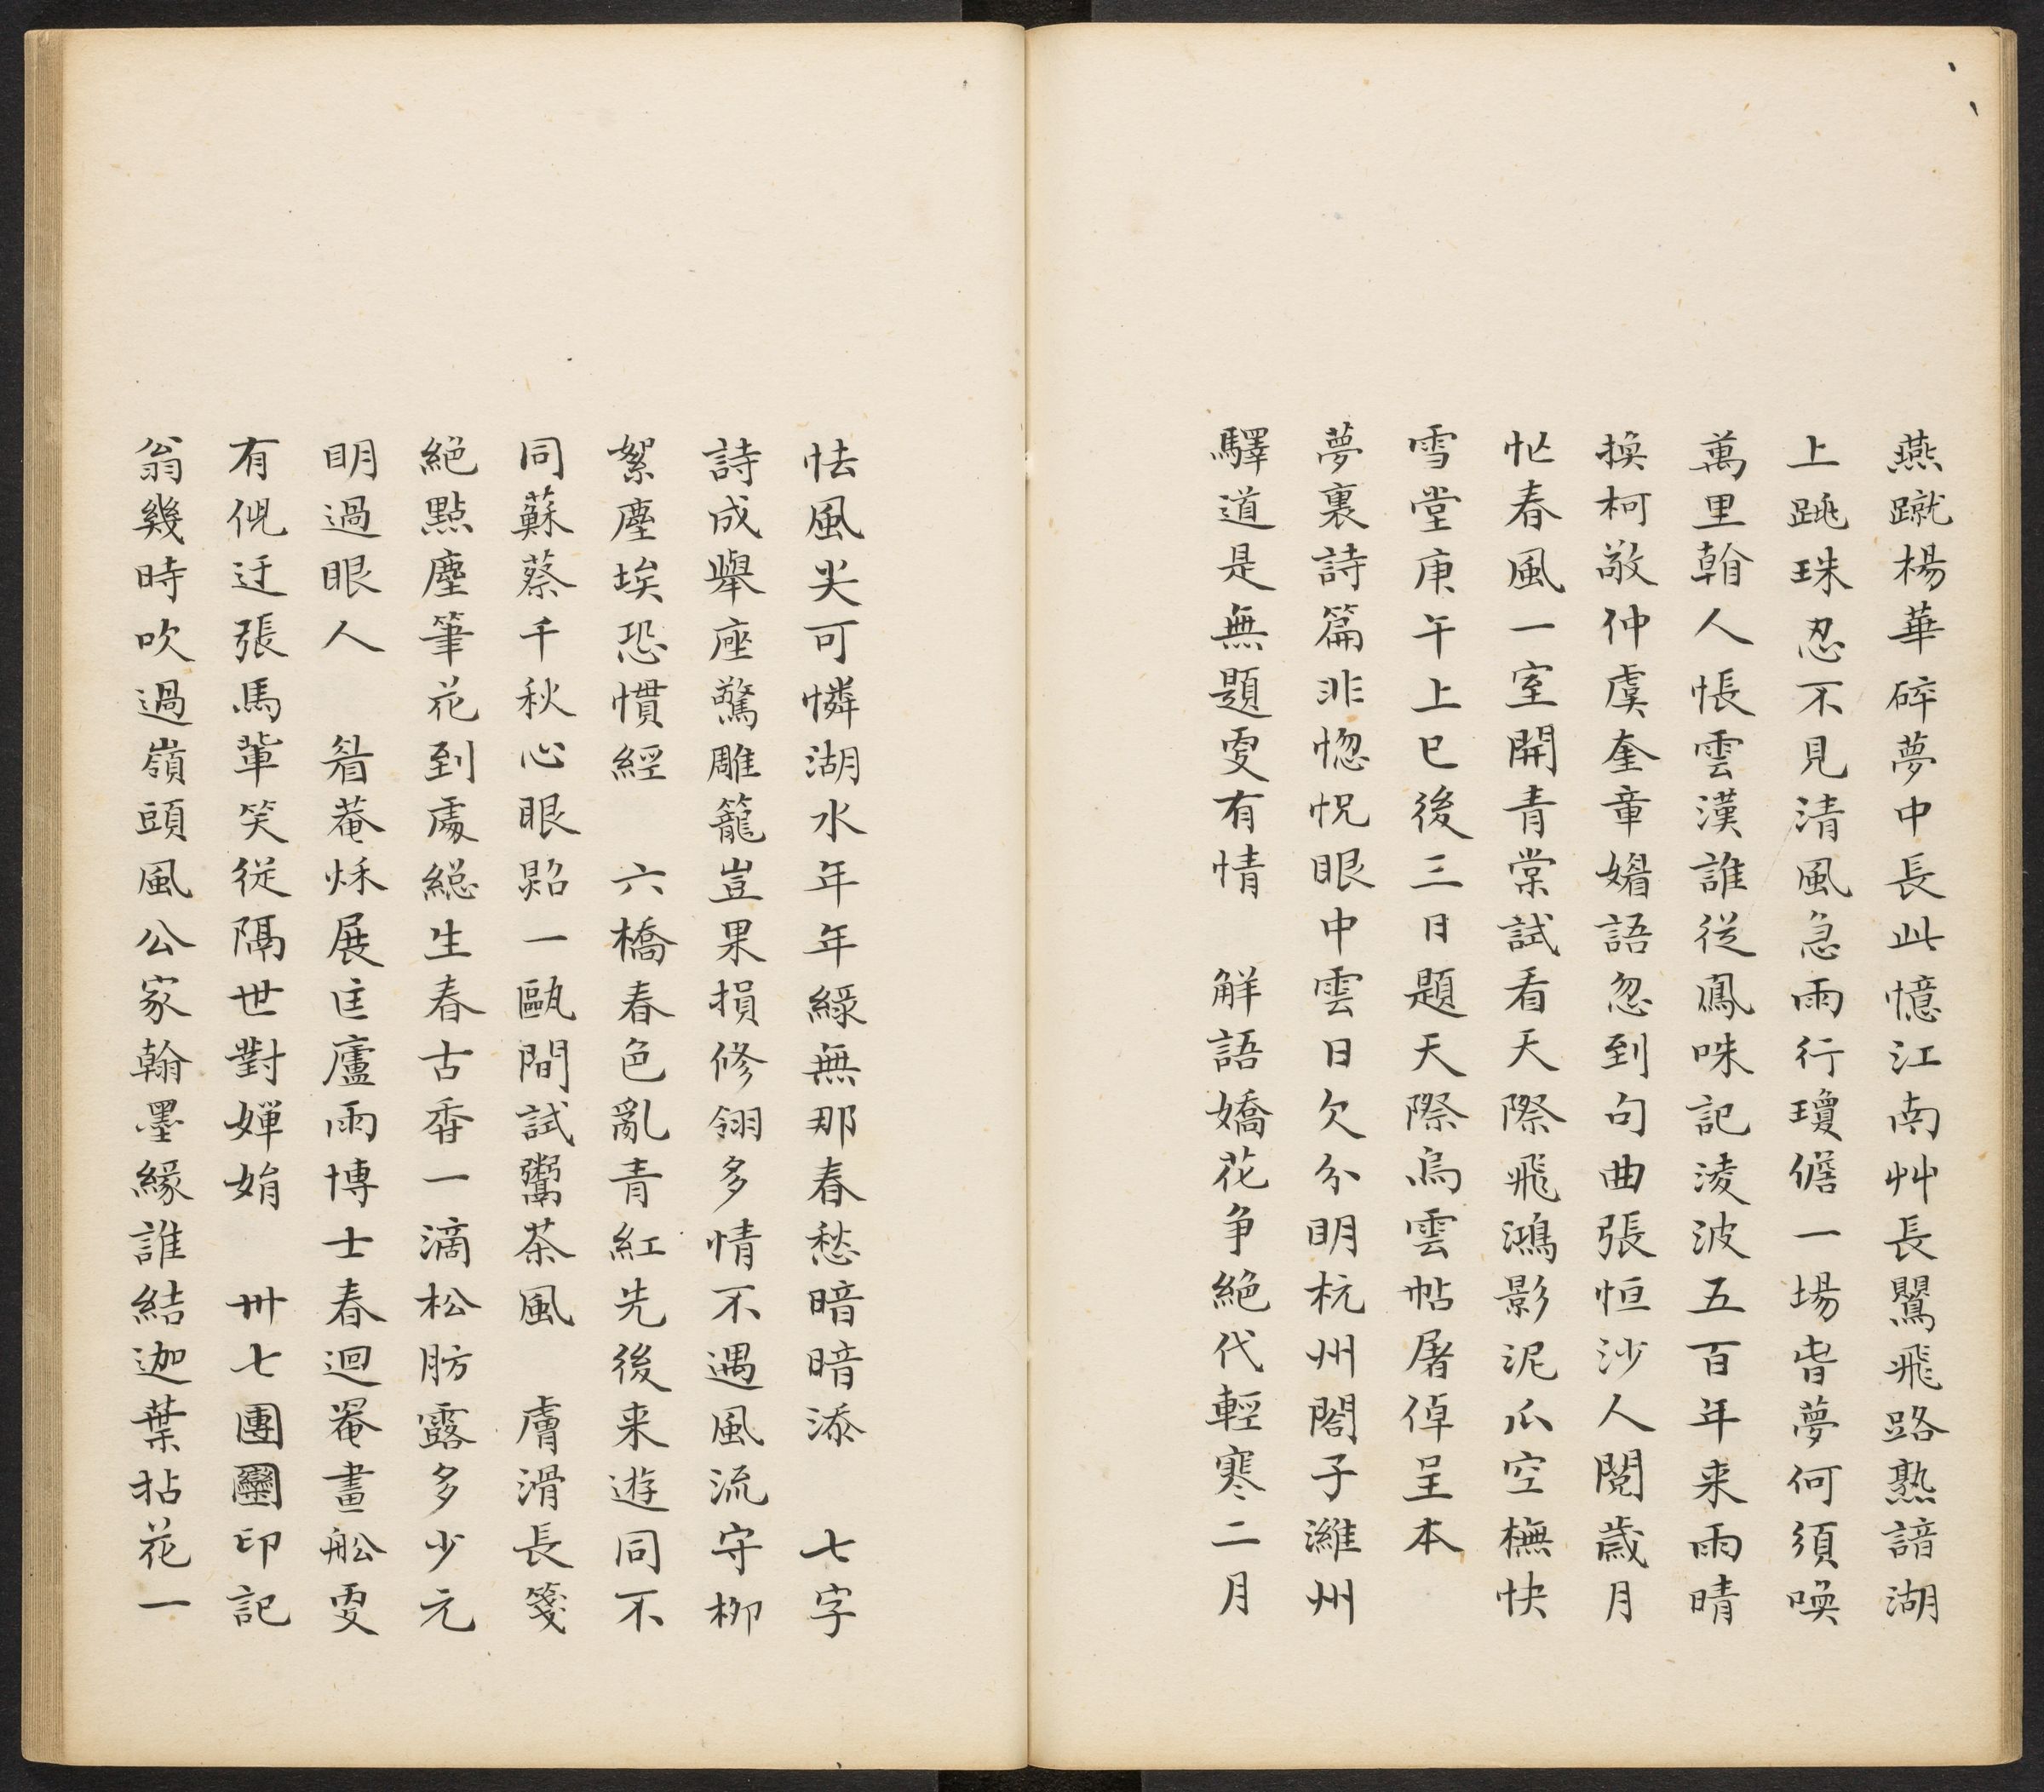 燕蹴楊華碎夢中長此憶江南艸長鸎飛路熟諳湖
上跳珠忍不見清風急雨行瓊儋一場昔夢何須喚
萬里翰人悵雲漢誰從鳳咮記淩波五百年来雨晴
換柯敬仲虞奎章媚語忽到句曲張恒沙人閱歲月
忙春風一室開青棠試看天際飛鴻影泥爪空橅快
雪堂庚午上巳後三日題天際烏雲帖屠倬呈本
夢裏詩篇非惚怳眼中雲日欠分明杭州閣子濰州
驛道是無題㪅有情　解語嬌花争絶代輕寒二月
怯風尖可憐湖水年年緑無那春愁暗暗添　七字
詩成舉座驚雕籠豈果損修翎多情不遇風流守柳
絮塵埃恐慣經　六橋春色亂青紅先後来遊同不
同蘇蔡千秋心眼照一甌閒試鬻茶風　膚滑長箋
絶點塵筆花到處緫生春古香一滴松肪露多少元
明過眼人　㫺菴炢展匡廬雨博士春迴罨畫舩㪅
有倪迂張馬輩笑從隔世對嬋娟　卅七團圞印記
翁幾時吹過嶺頭風公家翰墨緣誰結迦葉拈花一